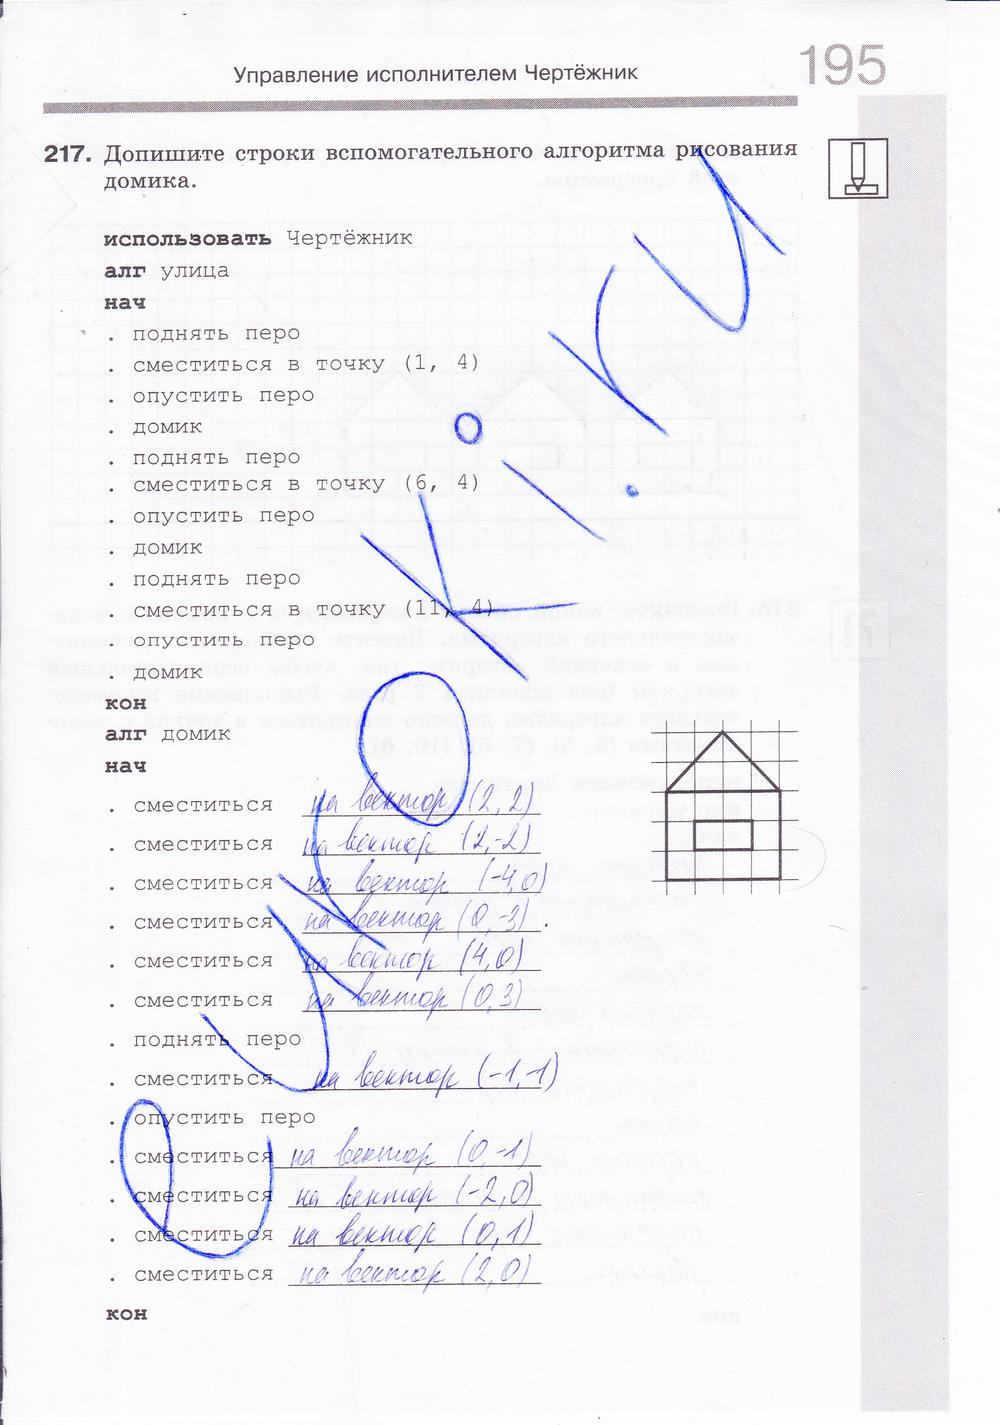 Управление исполнителем Чертёжник
195
217. Допишите строки вспомогательного алгоритма рисования
домика.
использовать Чертёжник
алг улица
нач
. поднять перо
. сместиться в точку (1, 4)
. опустить перо
. домик
. поднять перо
. сместиться в точку (6, 4)
. опустить перо
. домик
. поднять перо
. сместиться в точку (11, 4)
. опустить перо
. домик
кон
алг домик
нач
. сместиться на вектор (2, 2)
. сместиться на вектор (2,-2)
. сместиться на вектор (-4,0)
. сместиться на вектор (0,-3)
. сместиться на вектор (4,0)
. сместиться на вектор (0,3)
. поднять перо
. сместиться на вектор (-1,-1)
. опустить перо
. сместиться на вектор (0,-1)
. сместиться на вектор (-2,0)
. сместиться на вектор (0,1)
. сместиться на вектор (2,0)
кон